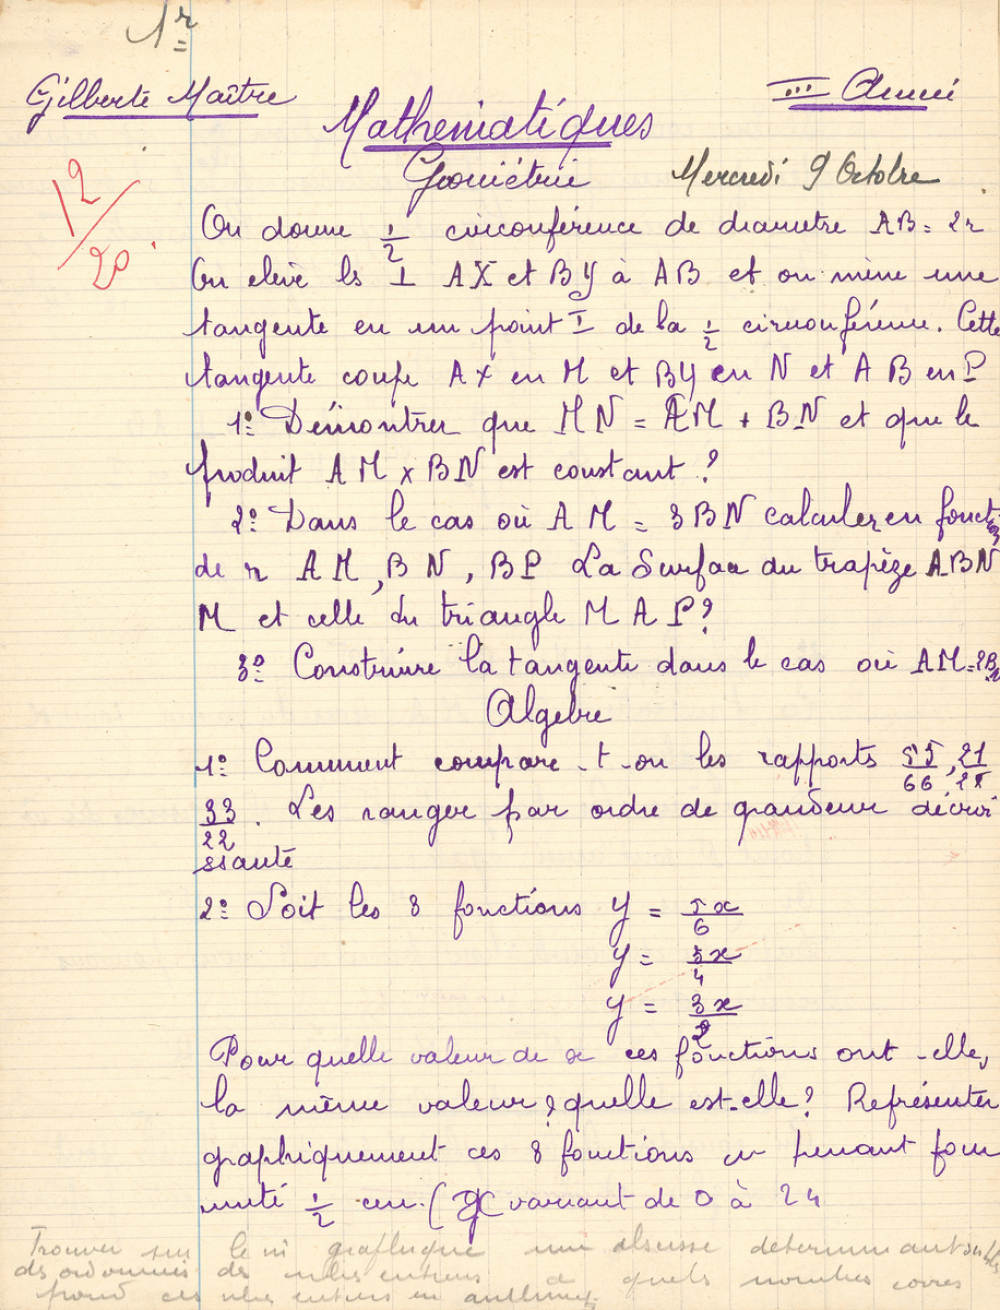 1r
Gilberte Maître
III Année
Mathématiques
Géométrie Mercredi 9 Octobre
12/20.
On donne 1/2 circonférence de diametre AB = 2r
On elève ls ⊥ AX et BY à AB et on mène une
tangente en un point I de la 1/2 circonférence. Cette
tangente coupe AX en M et BY en N et AB en P
1º Démontrer que MN = AM + BN et que le
produit AM x BN est constant ?
2º Dans le cas où AM = 3BN calculer en fonct
de r AM, BN, BP La Surface du trapèze ABN
M et celle du triangle MAP ?
3º Construire la tangente dans le cas où AM=3BN
Algebre
1º Comment compare-t-on les rapports 55/66, 21/28
33/22. Les ranger par ordre de grandeur décroi
ssante
2º Soit les 3 fonctions y = 5x/6
y = 3x/4
y = 3x/2
Pour quelle valeur de x ces fonctions ont-elles
la même valeur, quelle est-elle? Représenter
graphiquement ces 3 fonctions en prenant pour
unité 1/2 cm. (x variant de 0 à 24
Trouver sur le ni graphique une abscisse determinant
des ordonnées des nbres entiers à quels nombres corres
pond ces nbres entiers en